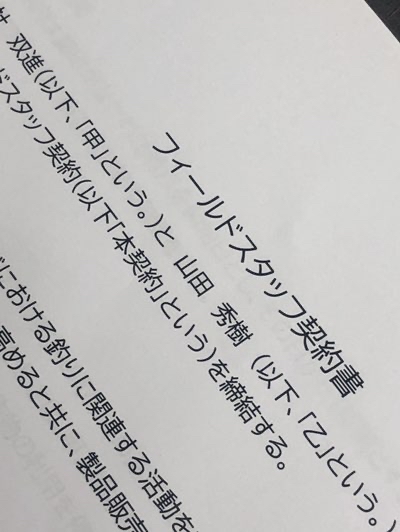 フィールドスタッフ契約書
双進(以下、「甲」という。)と 山田 秀樹 (以下、「乙」という。)
スタッフ契約(以下「本契約」という)を締結する。
における釣りに関連する活動を
高めると共に、製品販売